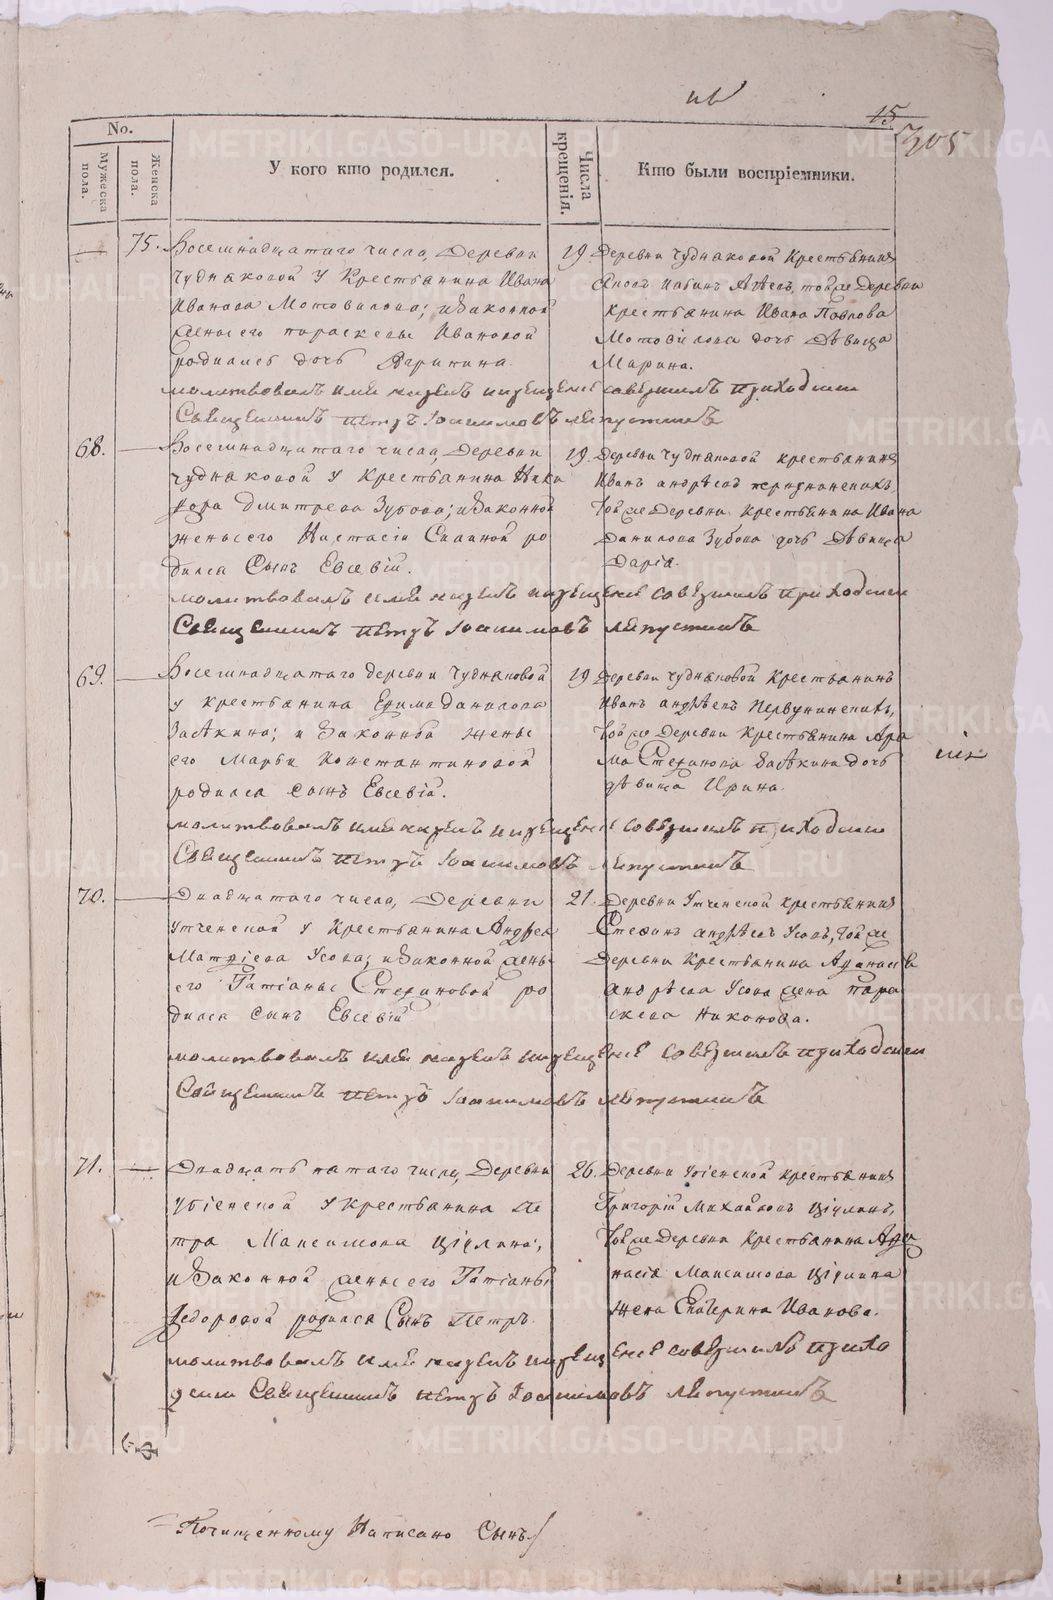 15
305
No.
Мужеска пола.
Женска пола.
У кого кто родился.
Числа крещенія.
Кто были воспріемники.
75. Восемнадцатаго числа, Деревни
Чуднаковой у Крестьянина Ивана
Иванова Мотовилова; и законной
жены его Параскевы Ивановой
родилась дочь Агрипина.
19. Деревни Чуднаковой Крестьянинъ
той же Деревни
Крестьянина Ивана Павлова
Мотовилова дочь Дѣвица
Марина.
молитвовалъ имя нарекъ и крещеніе совершилъ приходскій
Священникъ Петръ Іоакимовъ Лепустинъ
68. Восемнадцатаго числа, Деревни
Чуднаковой у Крестьянина Ники
фора Дмитрева Зубова; и законной
жены его Настасіи Силиной ро
дился Сынъ Евсевій.
19. Деревни Чуднаковой крестьянинъ
Иванъ Андрѣевъ
той же Деревни Крестьянина Ивана
Данилова Зубова дочь Дѣвица
Дарія.
молитвовалъ имя нарекъ и крещеніе совершилъ приходскій
Священникъ Петръ Іоакимовъ Лепустинъ
69. Восемнадцатаго деревни Чуднаковой
у крестьянина Ефима Данилова
Засѣкина; и законной жены
его Марьи Константиновой
родился сынъ Евсевій.
19 Деревни Чуднаковой Крестьянинъ
Иванъ Андрѣевъ
той же Деревни Крестьянина
Стефанова Засѣкина дочь
дѣвица Ирина.
молитвовалъ имя нарекъ и крещеніе совершилъ приходскій
Священникъ Петръ Іоакимовъ Лепустинъ
70. Двадцатаго числа, Деревни
Утченской у Крестьянина Андрея
Матфіева Усова; и законной жены
его Татіаны Стефановой ро
дился сынъ Евсевій
21. Деревни Утченской Крестьянинъ
Стефанъ Андрѣевъ Усовъ, той же
Деревни Крестьянина Афанасія
Андрѣева Усова жена Пара
скева Никонова.
молитвовалъ имя нарекъ и крещеніе совершилъ приходскій
Священникъ Петръ Іоакимовъ Лепустинъ
71. Двадцать пятаго числа, Деревни
у Крестьянина Пе
тра Максимова
и законной жены его Татіаны
Федоровой родился Сынъ Петръ.
26. Деревни крестьянинъ
Григорій Михайловъ
той же Деревни Крестьянина Афа
насія Максимова
жена Екатерина Иванова.
молитвовалъ имя нарекъ и крещеніе совершилъ прихо
дскій Священникъ Петръ Іоакимовъ Лепустинъ
По чищенному Написано Сынъ